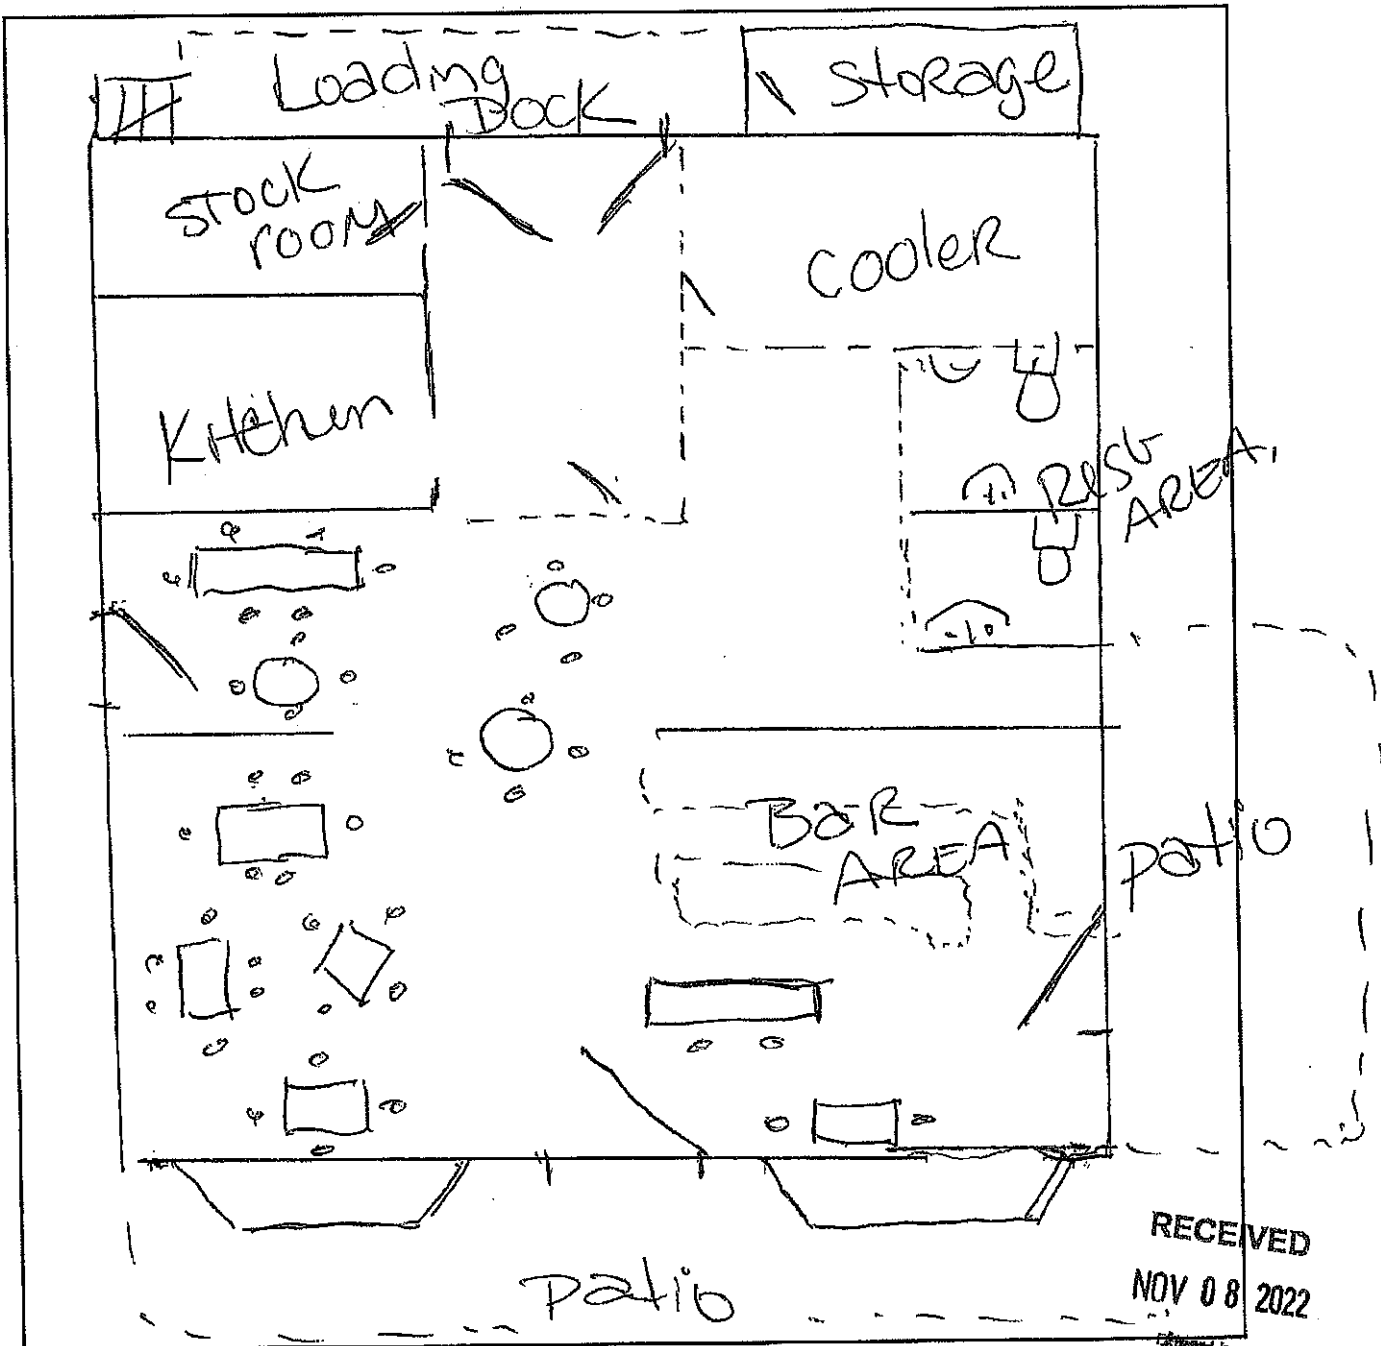 Loading
Dock
Storage
Stock
room
Cooler
Kitchen
Rest
AREA
Bar
AREA
patio
patio
RECEIVED
NOV 08 2022